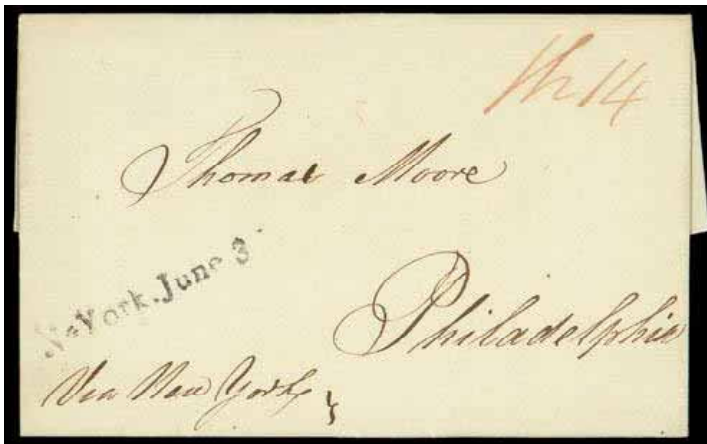 Sh 14
Thomas Moore
N-York. June 3
Philadelphia
Via New York